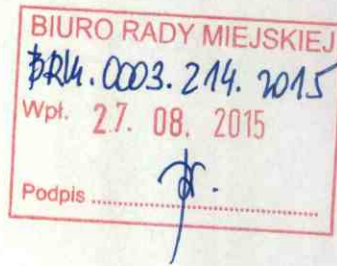 BIURO RADY MIEJSKIEJ
BRM.0003.214.2015
Wpł. 27. 08. 2015
Podpis ....................